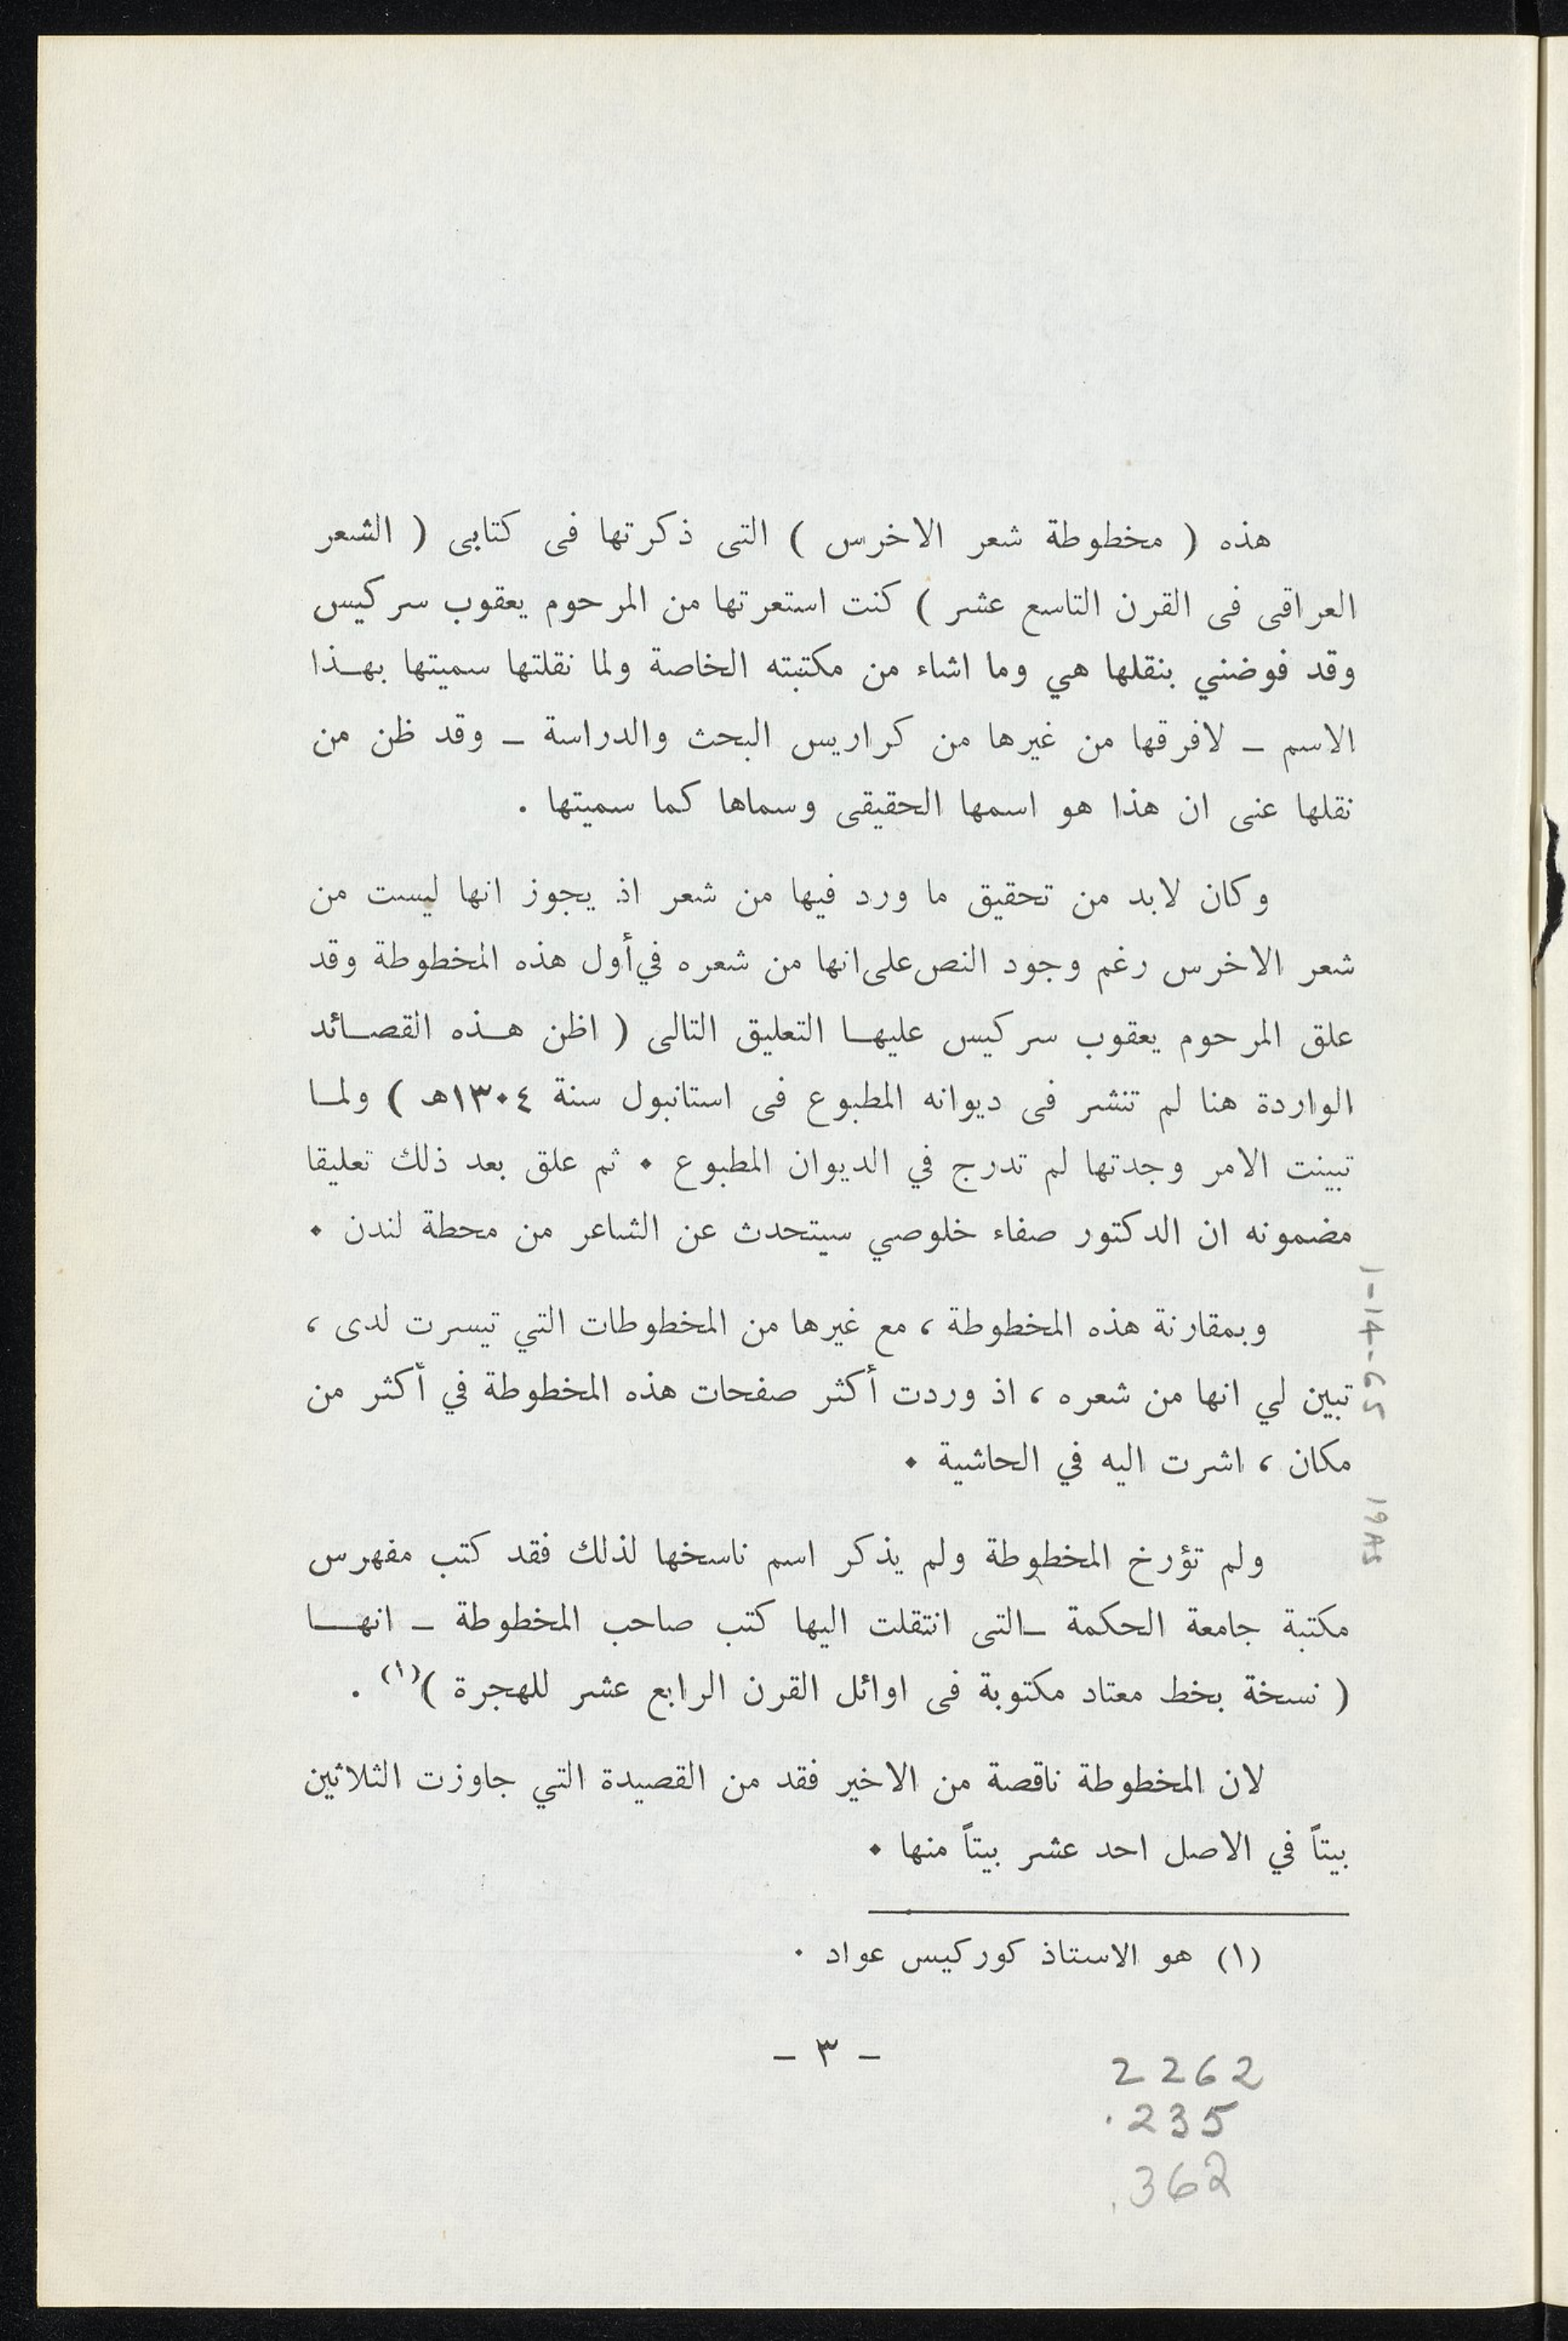 هذه ( مخطوطة شعر الاخرس ) التى ذكرتها فى كتابى ( الشعر
العراقى فى القرن التاسع عشر ) كنت استعرتها من المرحوم يعقوب سركيس
وقد فوضني بنقلها هي وما اشاء من مكتبته الخاصة ولما نقلتها سميتها بهـذا
الاسم ــ لافرقها من غيرها من كراريس البحث والدراسة ــ وقد ظن من
نقلها عنى ان هذا هو اسمها الحقيقى وسماها كما سميتها .
وكان لابد من تحقيق ما ورد فيها من شعر اذ يجوز انها ليست من
شعر الاخرس رغم وجود النص على انها من شعره في أول هذه المخطوطة وقد
علق المرحوم يعقوب سركيس عليهـا التعليق التالى ( اظن هـذه القصـائد
الواردة هنا لم تنشر فى ديوانه المطبوع فى استانبول سنة ١٣٠٤هـ ) ولمـا
تبينت الامر وجدتها لم تدرج في الديوان المطبوع ٠ ثم علق بعد ذلك تعليقا
مضمونه ان الدكتور صفاء خلوصي سيتحدث عن الشاعر من محطة لندن ٠
وبمقارنة هذه المخطوطة ، مع غيرها من المخطوطات التي تيسرت لدى ،
تبين لي انها من شعره ، اذ وردت أكثر صفحات هذه المخطوطة في أكثر من
مكان ، اشرت اليه في الحاشية ٠
ولم تؤرخ المخطوطة ولم يذكر اسم ناسخها لذلك فقد كتب مفهرس
مكتبة جامعة الحكمة ــالتى انتقلت اليها كتب صاحب المخطوطة ــ انهــا
( نسخة بخط معتاد مكتوبة فى اوائل القرن الرابع عشر للهجرة )(١) .
لان المخطوطة ناقصة من الاخير فقد من القصيدة التي جاوزت الثلاثين
بيتاً في الاصل احد عشر بيتاً منها ٠
(١) هو الاستاذ كوركيس عواد ٠
ــ ٣ ــ
2262
.235
.362
1-14-65